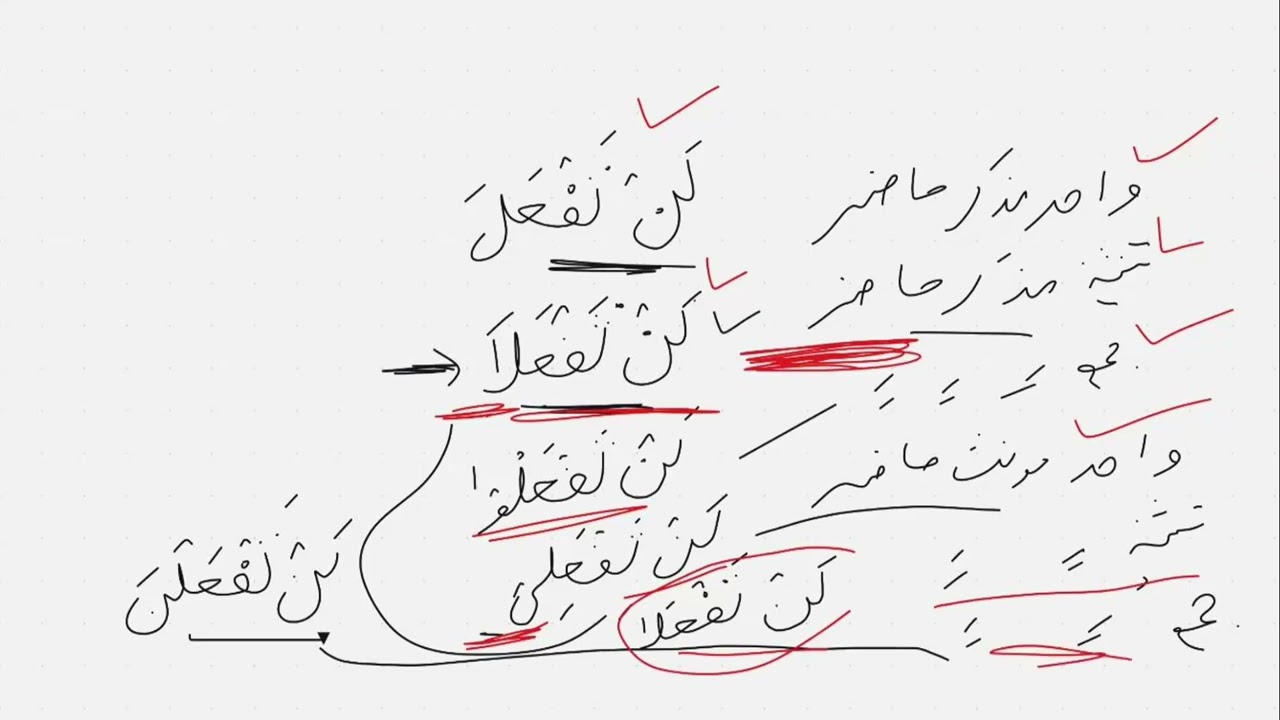 واحد مذکر حاضر لَنْ تَفْعَلَ
تثنیہ مذکر حاضر لَنْ تَفْعَلَا
جمع لَنْ تَفْعَلُوا
واحد مونث حاضر لَنْ تَفْعَلِي
تثنیہ لَنْ تَفْعَلَا
جمع لَنْ تَفْعَلْنَ